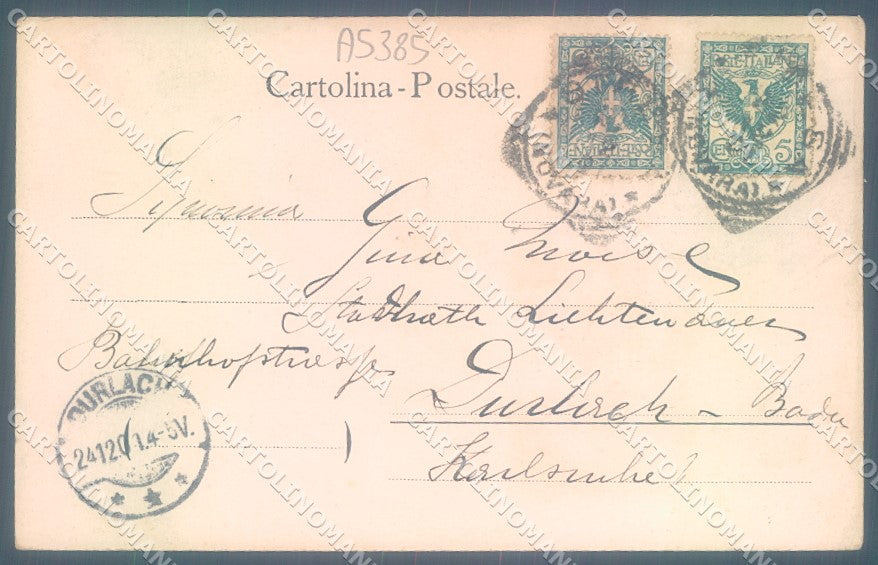 A5385
Cartolina-Postale.
POSTE ITALIANE
CENT. 5
(NOVARA)
Signorina
Gina
Stadtrath Lichtenauer
Bahnhofstrasse
Durlach - Baden
Karlsruhe
DURLACH
24.12.0 4-5V.
CARTOLINOMANIA